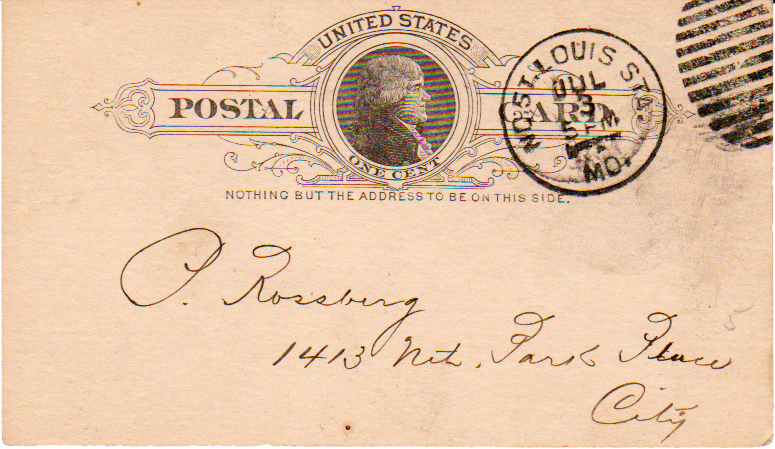 UNITED STATES
POSTAL CARD
ONE CENT
NOTHING BUT THE ADDRESS TO BE ON THIS SIDE.
ST. LOUIS STA. NO. 5
JUL
3
5 PM
MO.
P. Rossberg
1413 Nth. Park Place
City
5